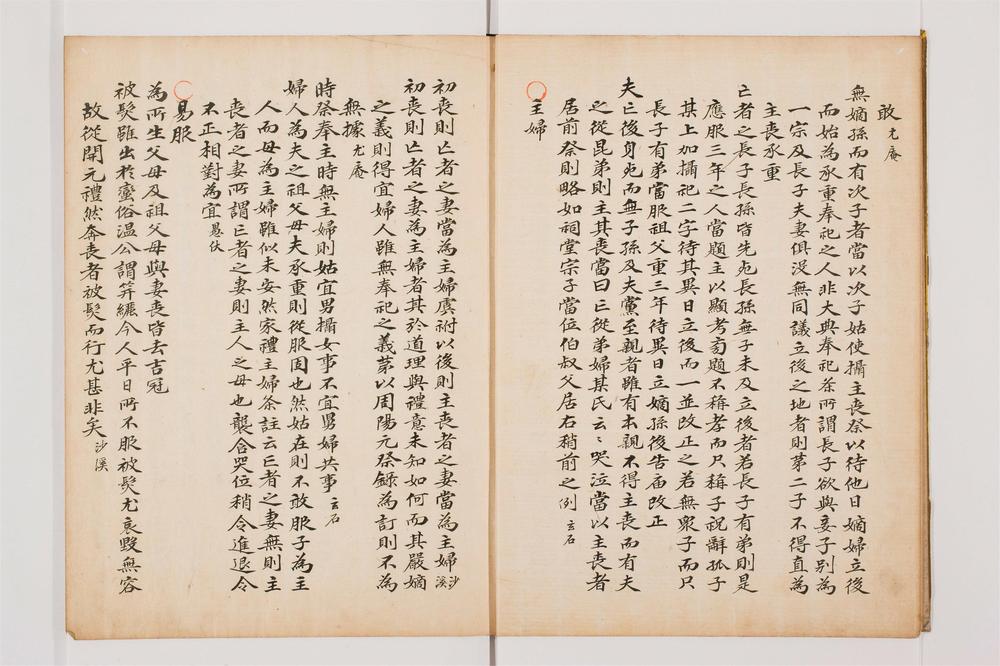 敢 尤庵
無嫡孫而有次子者當以次子姑使攝主喪祭以待他日嫡婦立後
而始為承重奉祀之人非大典奉祀茶所謂長子欲與妾子別為
一宗及長子夫妻俱沒無同議立後之地者則第二子不得直為
主喪承重
亡者之長子長孫皆先死長孫無子未及立後者若長子有弟則是
應服三年之人當題主以顯考旁題不稱孝而只稱子祝辭孤子
其上加攝祀二字待其異日立後而一並改正之若無衆子而只
長子有弟當服祖父重三年待異日立嫡孫後告畓改正
夫亡後身死而無子孫及夫黨至親者雖有本親不得主喪而有夫
之從昆弟則主其喪當曰亡從弟婦某氏云〻哭泣當以主喪者
居前祭則略如祠堂宗子當位伯叔父居右稍前之例 玄石
主婦
初喪則亡者之妻當為主婦虞祔以後則主喪者之妻當為主婦 沙溪
初喪則亡者之妻為主婦者其於道理與禮意未知如何而其嚴嫡
之義則得宜婦人雖無奉祀之義第以周陽元祭錄為訂則不為
無據 尤庵
時祭奉主時無主婦則姑宜男攝女事不宜男婦共事 玄石
婦人為夫之祖父母夫承重則從服固也然姑在則不敢服子為主
人而母為主婦雖似未安然家禮主婦条註云亡者之妻無則主
喪者之妻所謂亡者之妻則主人之母也襲含哭位稍令進退令
不正相對為宜 愚伏
易服
為所生父母及祖父母與妻喪皆去吉冠
被髮雖出於蠻俗溫公謂笄纚今人平日所不服被髮尤哀毁無容
故從開元禮然奔喪者被髮而行尤甚非矣 沙溪